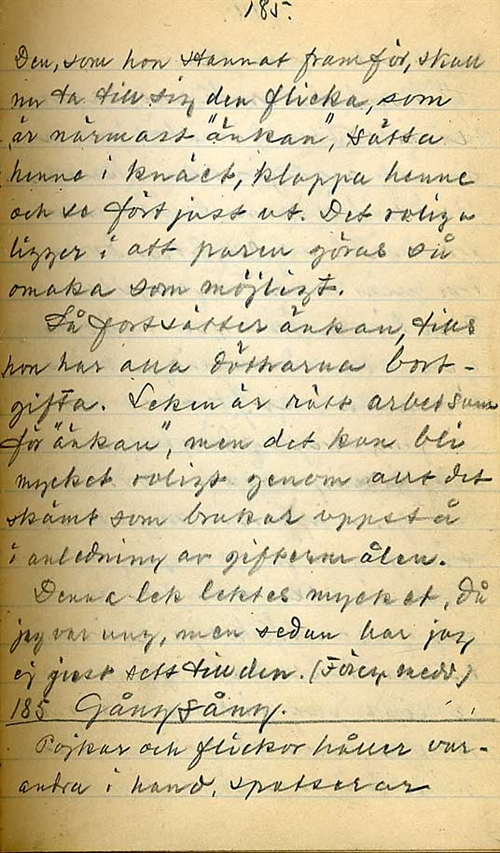 185.
Den, som hon stannat framför, skall
nu ta till sig den flicka, som
är närmast "änkan", sätta
henne i knäet, klappa henne
och se förtjust ut. Det roliga
ligger i att paren göras så
omaka som möjligt.
Så fortsätter änkan, tills
hon har alla döttrarna bort-
gifta. Leken är rätt arbetsam
för "änkan", men det kan bli
mycket roligt genom allt det
skämt som brukar uppstå
i anledning av giftermålen.
Denna lek lektes mycket, då
jag var ung, men sedan har jag
ej just sett till den. (Föreg. medd.)
185 Gångsång.
Pojkar och flickor håller var-
andra i hand, spatserar